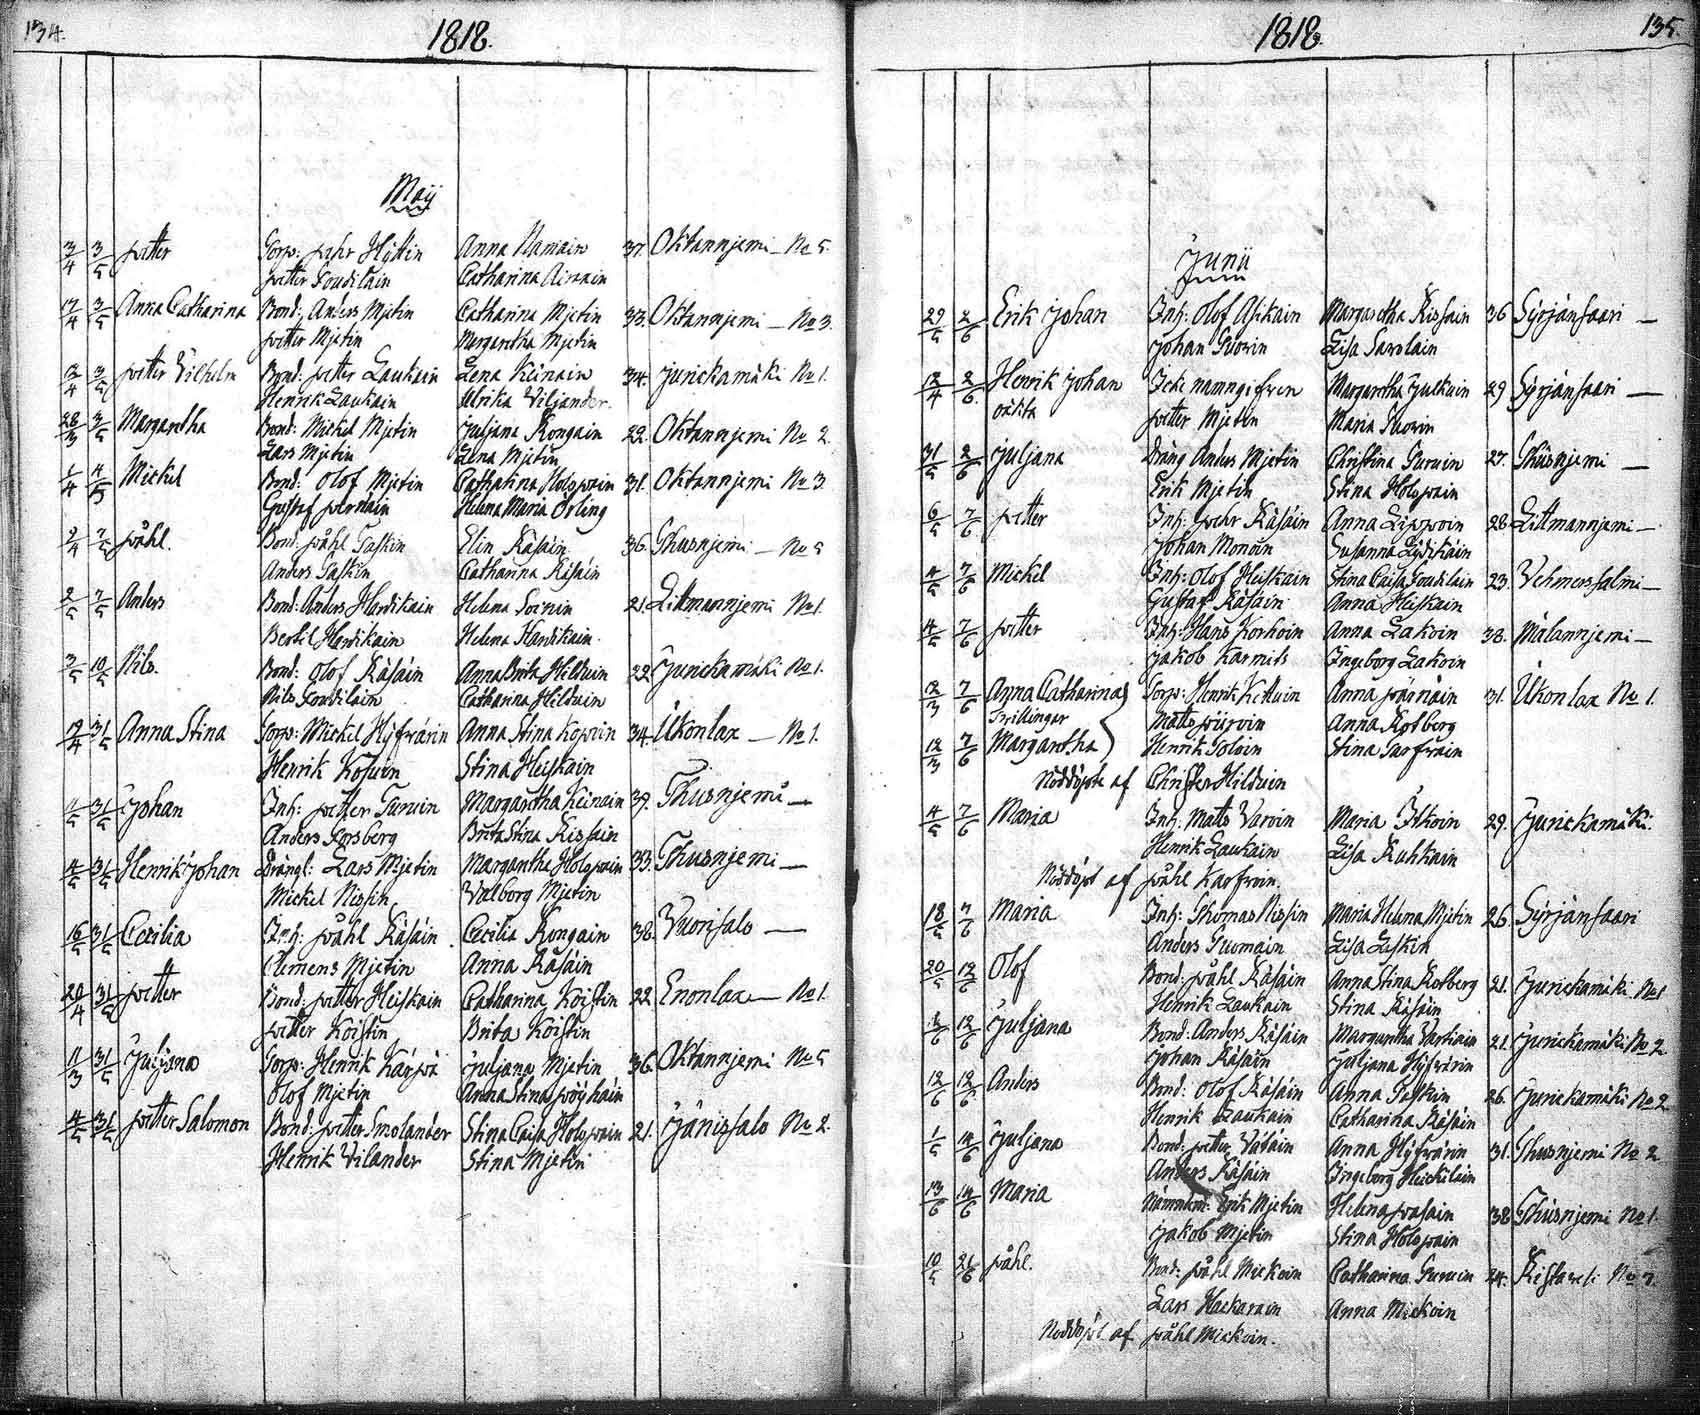 134.
1818.
Maij
3/4 3/5 Petter Sorp: Pehr Hyttin Anna Namain 37. Oktannjemi – No 5.
Petter Soudilain Catharina Airain
17/4 3/5 Anna Catharina Bond: Anders Mjetin Catharina Mjetin 33. Oktannjemi – No 3.
Petter Mjetin Margaretha Mjetin
Petter Vilhelm Bond: Petter Laukain Lena Keinain 34. Jurickamäki No 1.
Henrik Laukain Ulrika Viljander.
28/3 3/5 Margaretha Bond: Mickel Mjetin Juljana Kongain 22. Oktannjemi No 2.
Lars Mjetin Lena Mjetin
Mickel Bond: Olof Mjetin Catharina Holopain 31. Oktannjemi No 3.
Gustaf Helena Maria Örling
Påhl. Bond: Påhl Taskin Elin Räsäin 36. Thusnjemi – No 5
Anders Taskin Catharina Räsäin
2/5 7/5 Anders Bond: Anders Hardikain Helena Soinin 21. Littmannjemi No 1.
Bertil Hardikain Helena Hardikain.
3/5 10/5 Nils. Bond: Olof Räsäin Anna Brita Hilduin 22. Jurickamäki No 1.
Nils Soudilain Catharina Hilduin
31/5 Anna Stina Sorp: Mickel Hyfvärin Anna Stina Kopoin 34. Ukonlax – No 1.
Henrik Kosuin Stina Heiskain
31/5 Johan Inh: Petter Turuin Margaretha Keinain 39. Thusnjemi –
Anders Forsberg Brita Stina Kissain
4/5 31/5 Henrik Johan Drängl: Lars Mjetin Margaretha Holopain 33. Thusnjemi –
Mickel Nissin Valborg Mjetin
16/5 31/5 Cecilia Inh: Påhl Räsäin Cecilia Kongain 38. Vuorisalo –
Clemens Mjetin Anna Räsäin
20/4 31/5 Petter Bond: Petter Heiskain Catharina Koistin 22. Enonlax – No 1.
Petter Koistin Brita Koistin
11/3 31/5 Juljana Sorp: Henrik Kärpä Juljana Mjetin 36. Oktannjemi No 5
Olof Mjetin Anna Stina Pöyhäin
31/5 Petter Salomon Bond: Petter Smolander Stina Caisa Holopain 21. Jänissalo No 2.
Henrik Vilander Stina Mjetin
1818.
135.
Junii
29/5 2/6 Erik Johan Inh: Olof Asikain Margaretha Kissain 36 Syrjänsaari –
Johan Tuovin Lisa Savolain
12/4 2/6 Henrik Johan Icke namngifven Margaretha Julkuin 29 Syrjänsaari –
oäkta Petter Mjetin Maria Tuovin
31/5 2/6 Juljana Dräng Anders Mjetin Christina Turuin 27. Thusnjemi –
Erik Mjetin Stina Holopain
6/5 7/6 Petter Inh: Pehr Räsäin Anna Lippoin 28 Littmannjemi –
Johan Monoin Susanna Lydikäin
4/5 7/6 Mickel Inh: Olof Heiskain Stina Caisa Soudilain 23. Vehmersalmi –
Gustaf Räsäin Anna Heiskain
4/5 7/6 Petter Inh: Hans Korhoin Anna Lakoin 38. Mälannjemi –
Jakob Karmits Ingeborg Lakoin
12/3 7/6 Anna Catharina Sorp: Henrik Kettuin Anna 31. Ukonlax No 1.
Tvillingar Matts Anna Rotberg
12/3 7/6 Margaretha Henrik Toloin Stina
Nöddöpte af Christer Hilduin
4/5 7/6 Maria Inh: Matts Varoin Maria Itkoin 29. Jurickamäki.
Henrik Laukain Lisa Ruhkain
Nöddöpt af Påhl Karfvoin.
18/5 7/6 Maria Inh: Thomas Nissin Maria Helena Mjetin 26. Syrjänsaari
Anders Tuomain Lisa Laskin
20/5 12/6 Olof Bond: Påhl Räsäin Anna Stina Rotberg 21. Jurickamäki No 1
Henrik Laukain Stina Räsäin
12/6 Juljana Bond: Anders Räsäin Margaretha Vartiain 21. Jurickamäki No 2.
Johan Räsäin Juljana Hyfvärin
12/6 12/6 Anders Bond: Olof Räsäin Anna Taskin 26. Jurickamäki No 2
Henrik Laukain Catharina Räsäin
1/5 14/6 Juljana Bond: Petter Väsäin Anna Hyfvärin 31. Thusnjemi No 2
Anders Räsäin Ingeborg Heickilain
13/6 14/6 Maria Nämndem: Erik Mjetin Helena 38 Thusnjemi No 1.
Jakob Mjetin Stina Holopain
10/5 21/6 Påhl. Bond: Påhl Mickoin Catharina Turuin 24. Ristavesi No 7.
Lars Hackarain Anna Mickoin
Nöddöpt af Påhl Mickoin.